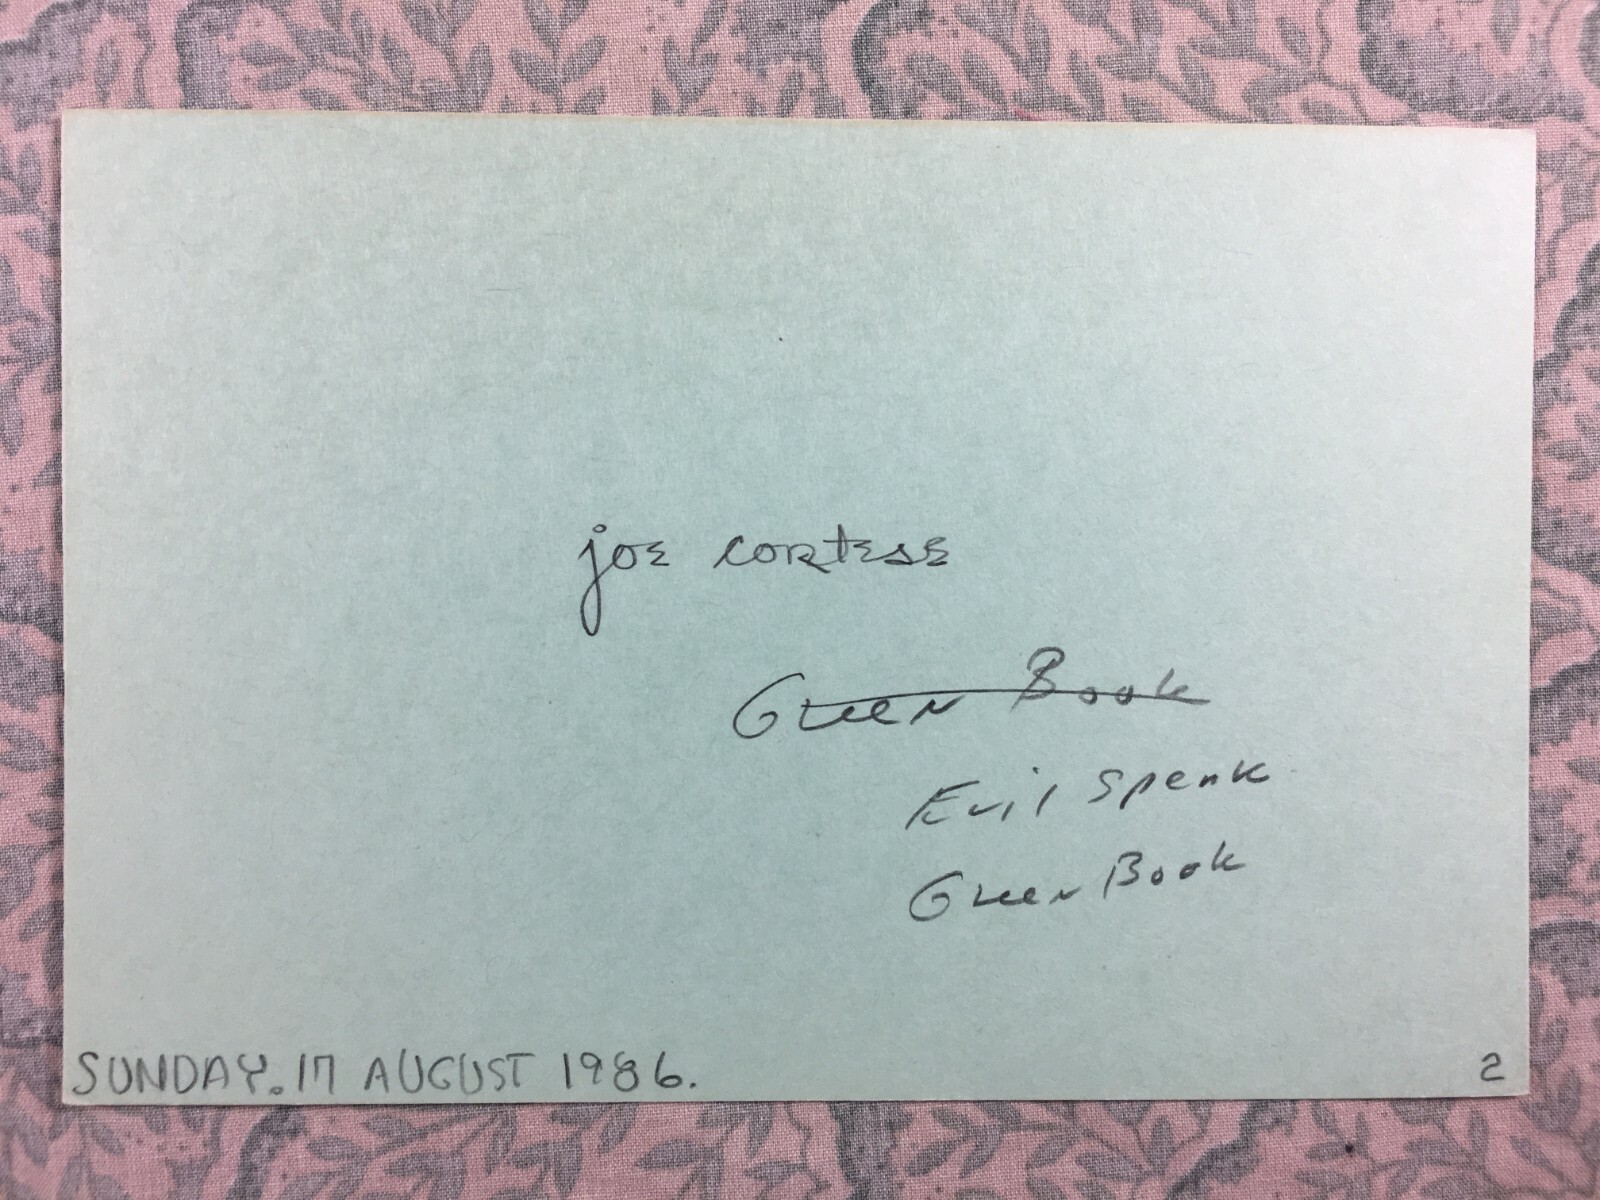 joe cortese
Green Book
Evil Speak
Green Book
SUNDAY. 17 AUGUST 1986.
2